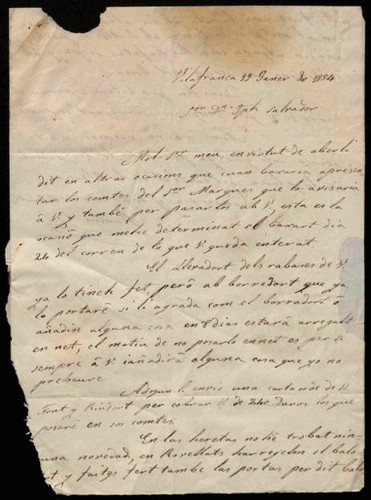 Vilafranca 19 Janer de 1854
por Dn. Jph Salvador
Molt Sor. meu, en virtut de aberli
dit en altras ocasions que cuan baxaria á presen
tar los comtes del Sor. Marques que lo avisaria
á V. y també per pasarlos ab V., esta es la
ocasió que me he determinat el baxart dia
24 del corren de lo que V. queda enterat.
El Llevador dels rabanes de V.
ya lo tinch fet, peró ab borredort que ya
lo portaré si li agrada com el borradort ó
añadin alguna cosa en 8 dias estará arreglat
en net, el motiu de no posarlo en net es per si
sempre á V. iañadirá alguna cosa que yo no
prebeure.
li envio una carta de
Font y Riusort per cobrar de 240 Duros los que
posaré en sos comtes.
En las heretas no hé trobat nin-
una novedad, en Rosellats harrejelm el balo
y faitys fert tambe las portas per dit balo